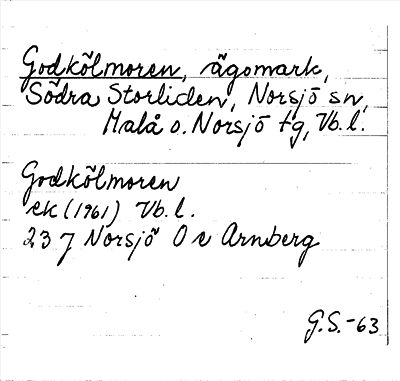 Godkölmoren, ägomark,
Södra Storliden, Norsjö sn,
Malå o. Norsjö tg, Vb. l.
Godkölmoren
ek (1961) Vb. l.
23 J Norsjö O v Arnberg
G.S.-63